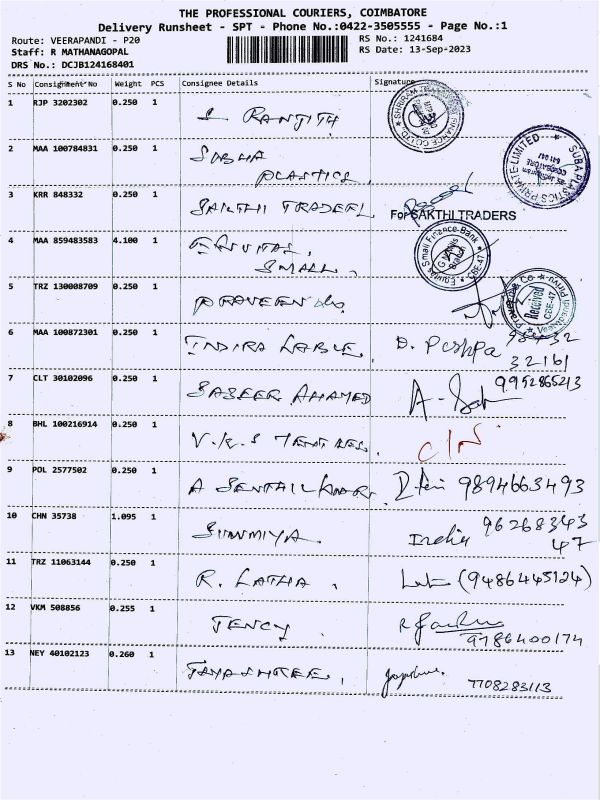 THE PROFESSIONAL COURIERS, COIMBATORE
Delivery Runsheet - SPT - Phone No.:0422-3505555 - Page No.:1
Route: VEERAPANDI - P20
RS No.: 1241684
Staff: R MATHANAGOPAL
RS Date: 13-Sep-2023
DRS No.: DCJB124168401
S No Consignment No Weight PCS Consignee Details Signature
1 RJP 3202302 0.250 1 RANJITH
2 MAA 100784831 0.250 1 SUBHA
PLASTICS.
3 KRR 848332 0.250 1 SAKTHI TRADERS
For SAKTHI TRADERS
4 MAA 859483583 4.100 1
SMALL.
5 TRZ 130008709 0.250 1 PRAVEEN
6 MAA 100872301 0.250 1 INDIRA LABLE. D. Pushpa
32161
7 CLT 30102096 0.250 1 SABEER AHAMED 9952865213
8 BHL 100216914 0.250 1 V.K.S
9 POL 2577502 0.250 1 A SENTHIL KUMAR 9894663493
10 CHN 35738 1.095 1 India 96268343
47
11 TRZ 11063144 0.250 1 R. LATHA. (9486445124)
12 VKM 508856 0.255 1 JENCY. 9786400174
13 NEY 40102123 0.260 1 JAYASHREE. 7708283113